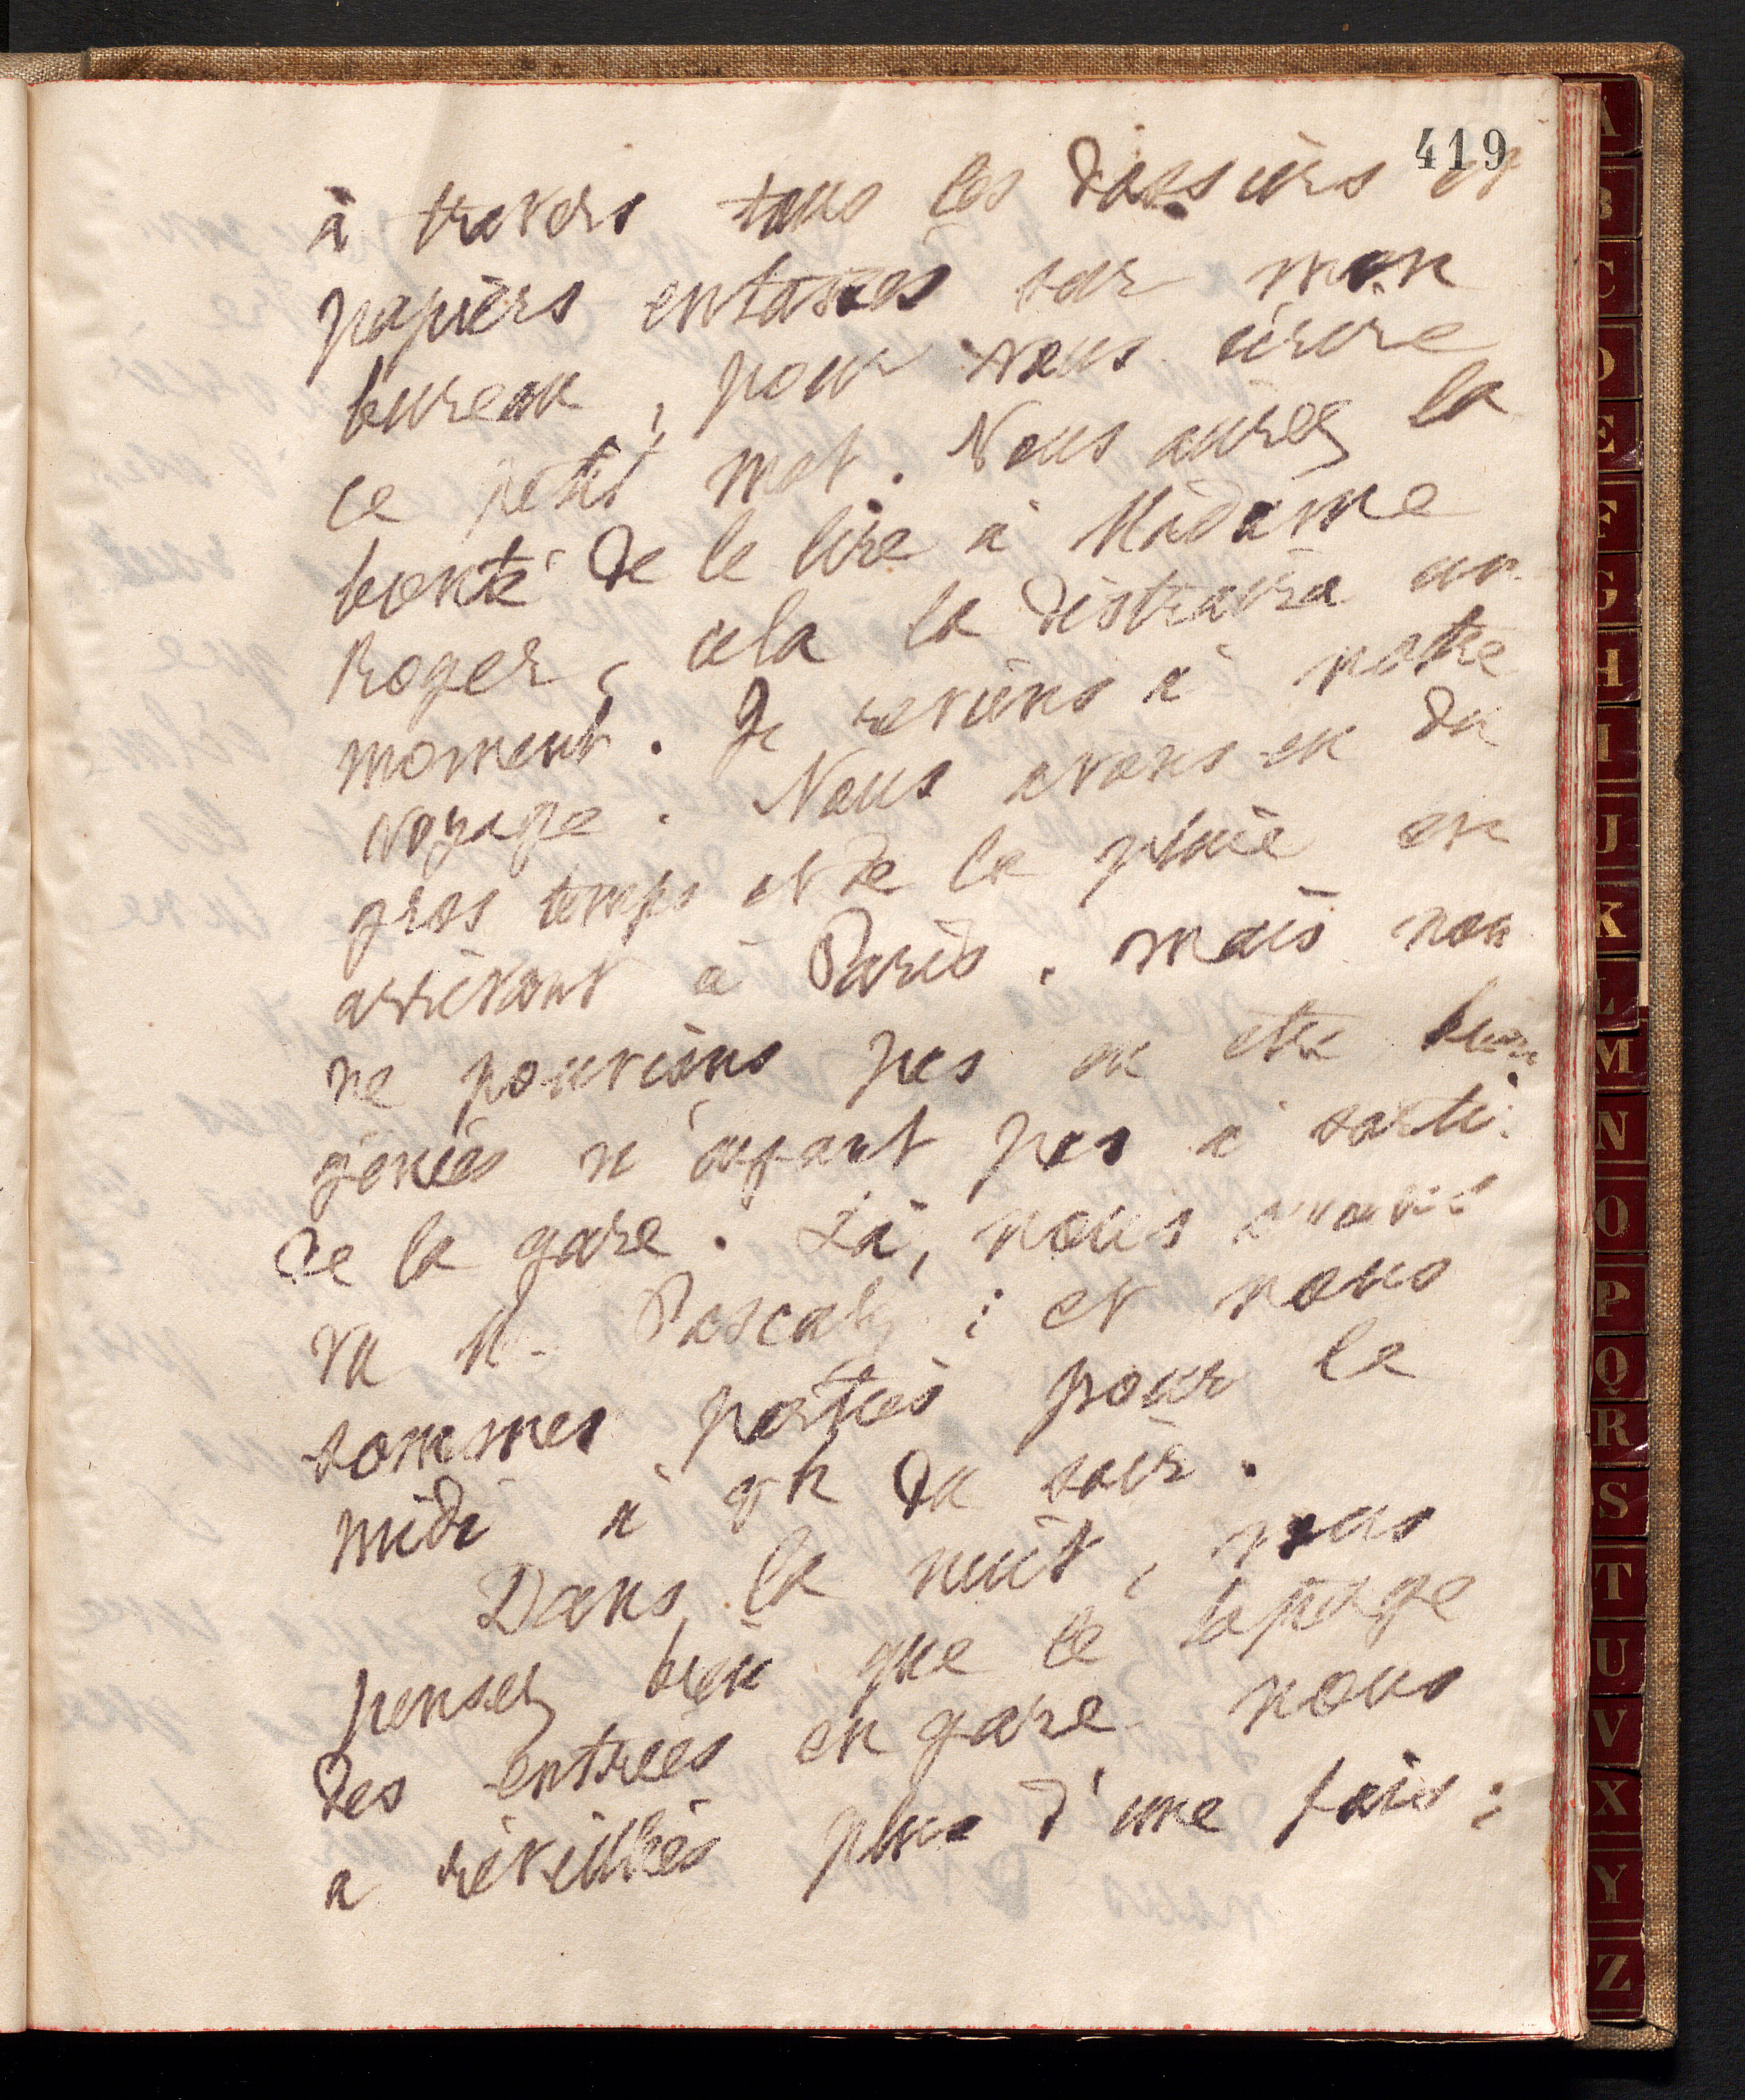 419
à travers tous les dossiers et
papiers entassés sur mon
bureau, pour vous écrire
ce petit mot. Vous aurez la
bonté de le lire à Madame
Roger, cela la distraira un
moment. Je reviens à notre
voyage. Nous avons eu du
gros temps et de la pluie en
arrivant à Paris, mais nou
ne pouvions pas en être bien
génées n'ayant pas à sorti
de la gare. Là, nous avons
vu M. Pascal ; et nous
sommes parties pour le
midi à 9h du soir.
Dans la nuit, vous
pensez bien que le tapage
des entrées en gare nous
a réveillées plus d'une fois ;
A
B
C
D
E
F
G
H
I
J
K
L
M
N
O
P
Q
R
S
T
U
V
X
Y
Z